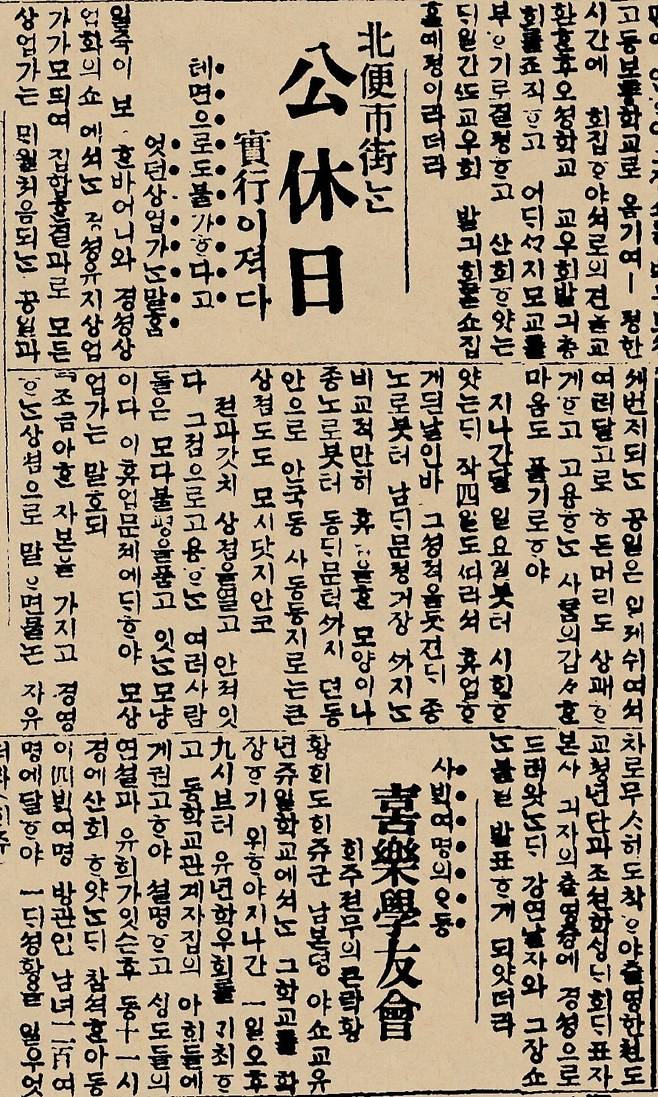 고등보통학교로 옴기여— 졍한
시간에 회집ᄒᆞ야셔로의견을교
환ᄒᆞᆫ후오셩학교 교우회발긔총
회를조직ᄒᆞ고 어ᄃᆡᄭᅡ지모교를
ᄒᆞ기로결졍ᄒᆞ고 산회ᄒᆞ얏는
ᄃᆡ일간ᄯᅩ교우회 발긔회를쇼집
ᄒᆞᆯ예졍이라더라
北便市街ᄂᆞᆫ
公休日
實行이젹다
톄면으로도불가ᄒᆞ다고
엇던상업가ᄂᆞᆫ말ᄒᆞᆷ
일즉이 보 ᄒᆞᆫ바어니와 경셩상
업화의쇼에셔ᄂᆞᆫ 경셩유지상업
가가모되여 집합ᄒᆞᆫ결과로 모든
상업가는 ᄆᆡ월처음되ᄂᆞᆫ 공일과
셰번ᄌᆡ되ᄂᆞᆫ 공일은 일제쉬여셔
여러달고로ᄒᆞ든머리도 상쾌ᄒᆞ
게ᄒᆞ고 고용ᄒᆞᄂᆞᆫ 사ᄅᆞᆷ의갑々ᄒᆞᆫ
마음도 풀기로ᄒᆞ야
지나간달 일요일붓터 시ᄒᆡᆼᄒᆞ
얏는ᄃᆡ 작四일도ᄯᅡ라셔 휴업ᄒᆞ
게된날인바 그셩젹을듯건ᄃᆡ 종
노로붓터 남ᄃᆡ문졍거장 ᄭᅡ지ᄂᆞᆫ
비교적만히 휴업을ᄒᆞᆫ 모양이나
종노로붓터 동ᄃᆡ문턱ᄭᅡ지 뎐동
안으로 안국동 사동등지로는큰
상뎜도도 모시닷지안코
젼과갓치 상뎜을열고 안져잇
다 그뎜으로고용ᄒᆞᄂᆞᆫ 여러사람
들은 모다불평을품고 잇ᄂᆞᆫ모냥
이다 이휴업문뎨에ᄃᆡᄒᆞ야 모상
업가는 말ᄒᆞ되
『조금아ᄒᆞᆫ 자본을 가지고 경영
ᄒᆞᄂᆞᆫ상뎜으로 말ᄒᆞ면물논 자유
차로무ᄉᆞ히도착ᄒᆞ야츌영한쳔도
교쳥년단과조션학ᄉᆡᆼᄃᆡ회ᄃᆡ표자
본사 긔자의츌영즁에 경셩으로
드러왓ᄂᆞᆫᄃᆡ 강연날자와 그장쇼
ᄂᆞᆫ불일 발표ᄒᆞ게 되얏더라
사ᄇᆡᆨ여명의ᄋᆞ동
喜樂學友會
ᄒᆡ쥬젼무의큰락황
황ᄒᆡ도ᄒᆡ쥬군 남본뎡 야쇼교유
년쥬일학교에셔ᄂᆞᆫ 그학교를 확
장ᄒᆞ기 위ᄒᆞ야지나간 一일오후
九시부터 유년학우회를 ᄀᆡ최ᄒᆞ
고 동학교관계자집의 아ᄒᆡ들에
게권고ᄒᆞ야 셜명ᄒᆞ고 ᄉᆡᆼ도들의
연셜과 유희가잇슨후 동十一시
경에산회 ᄒᆞ얏ᄂᆞᆫᄃᆡ 참셕ᄒᆞᆫ아동
이四ᄇᆡᆨ여명 방관인 남녀二百여
명에달ᄒᆞ야 一ᄃᆡ셩황을 일우엇